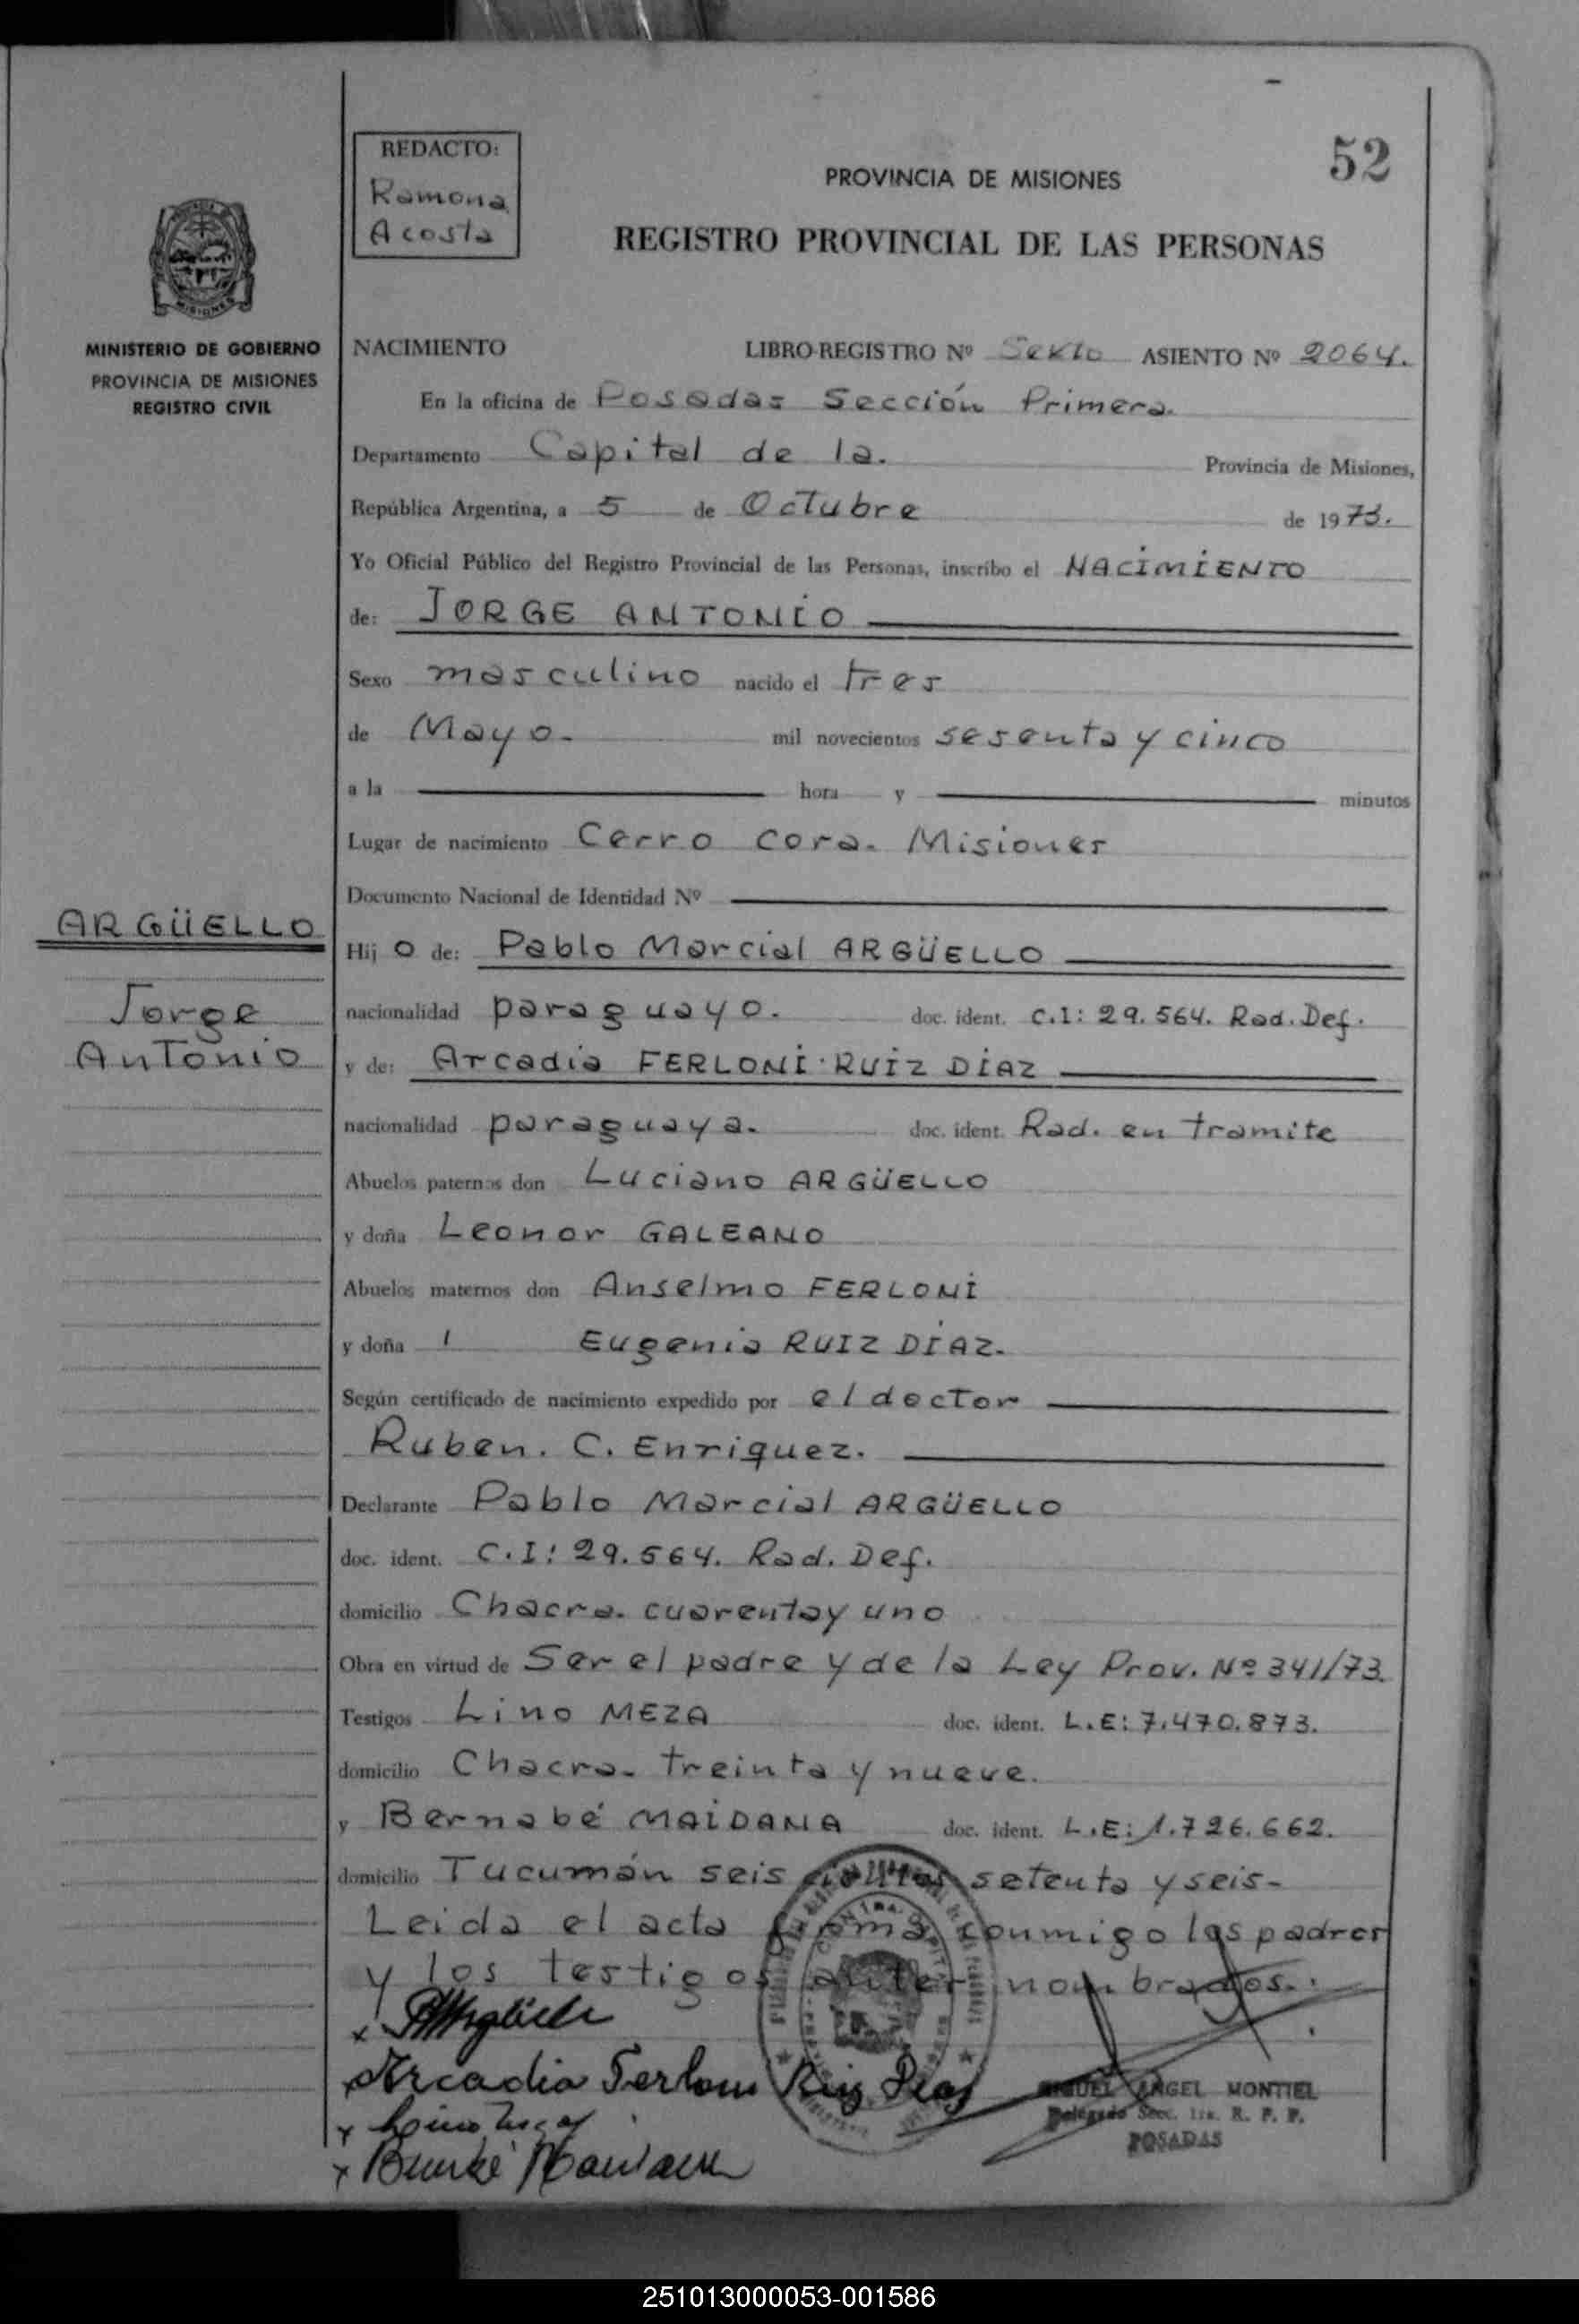 52
REDACTO:
Ramona
Acosta
PROVINCIA DE MISIONES
REGISTRO PROVINCIAL DE LAS PERSONAS
MISIONES
MINISTERIO DE GOBIERNO
PROVINCIA DE MISIONES
REGISTRO CIVIL
NACIMIENTO LIBRO-REGISTRO Nº Sexto ASIENTO Nº 2064.
En la oficina de Posadas Sección Primera.
Departamento Capital de la. Provincia de Misiones,
República Argentina, a 5 de Octubre de 1973.
Yo Oficial Público del Registro Provincial de las Personas, inscribo el NACIMIENTO
de: JORGE ANTONIO
Sexo masculino nacido el tres
de Mayo. mil novecientos sesenta y cinco
a la hora y minutos
Lugar de nacimiento Cerro Cora. Misiones
Documento Nacional de Identidad Nº
ARGÜELLO
Jorge
Antonio
Hij o de: Pablo Marcial ARGÜELLO
nacionalidad paraguayo. doc. ident. C.I: 29.564. Rad. Def.
y de: Arcadia FERLONI RUIZ DIAZ
nacionalidad paraguaya. doc. ident. Rad. en tramite
Abuelos paternos don Luciano ARGÜELLO
y doña Leonor GALEANO
Abuelos maternos don Anselmo FERLONI
y doña Eugenia RUIZ DIAZ.
Según certificado de nacimiento expedido por el doctor
Ruben. C. Enriquez.
Declarante Pablo Marcial ARGÜELLO
doc. ident. C.I: 29.564. Rad. Def.
domicilio Chacra. cuarenta y uno
Obra en virtud de Ser el padre y de la Ley Prov. Nº 341/73.
Testigos Lino MEZA doc. ident. L.E: 7.470.873.
domicilio Chacra. treinta y nueve.
y Bernabé MAIDANA doc. ident. L.E: 1.726.662.
domicilio Tucumán seis cientos setenta y seis-
Leida el acta firma conmigo los padres
y los testigos antes nombrados.
Arcadia Ferloni Ruiz Diaz
MIGUEL ANGEL MONTIEL
Delegado Secc. 1ra. R. P. P.
POSADAS
251013000053-001586